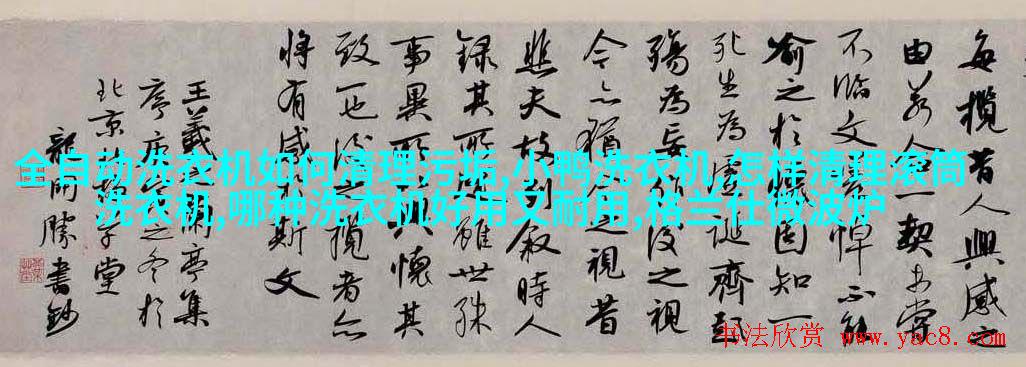 全自动洗衣机如何清理污垢,小鸭洗衣机,怎样清理滚筒
洗衣机,哪种洗衣机好用又耐用,格兰仕微波炉
每攬昔人興感之
由若合一契未嘗
不臨文嗟悼不能
喻之於懷固知一
死生為虛誕齊彭
殤為妄作後之視
今亦猶今之視昔
悲夫故列敘時人
錄其所述雖世殊
事異所以興懷其
致一也後之攬者亦
將有感於斯文
王羲之蘭亭集
序庚之冬於
北京堂
龍開勝書鈔
书法欣赏 www.yac8.com